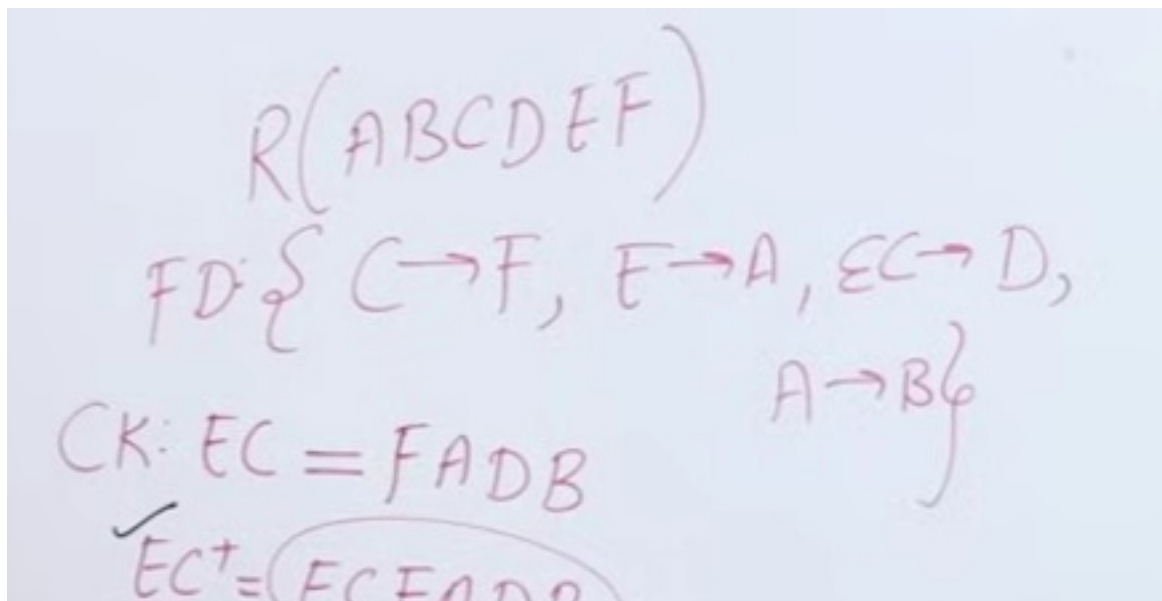 R(ABCDEF)
FD:{ C→F, E→A, EC→D,
A→B}
CK: EC = FADB
✓EC⁺= ECFADB